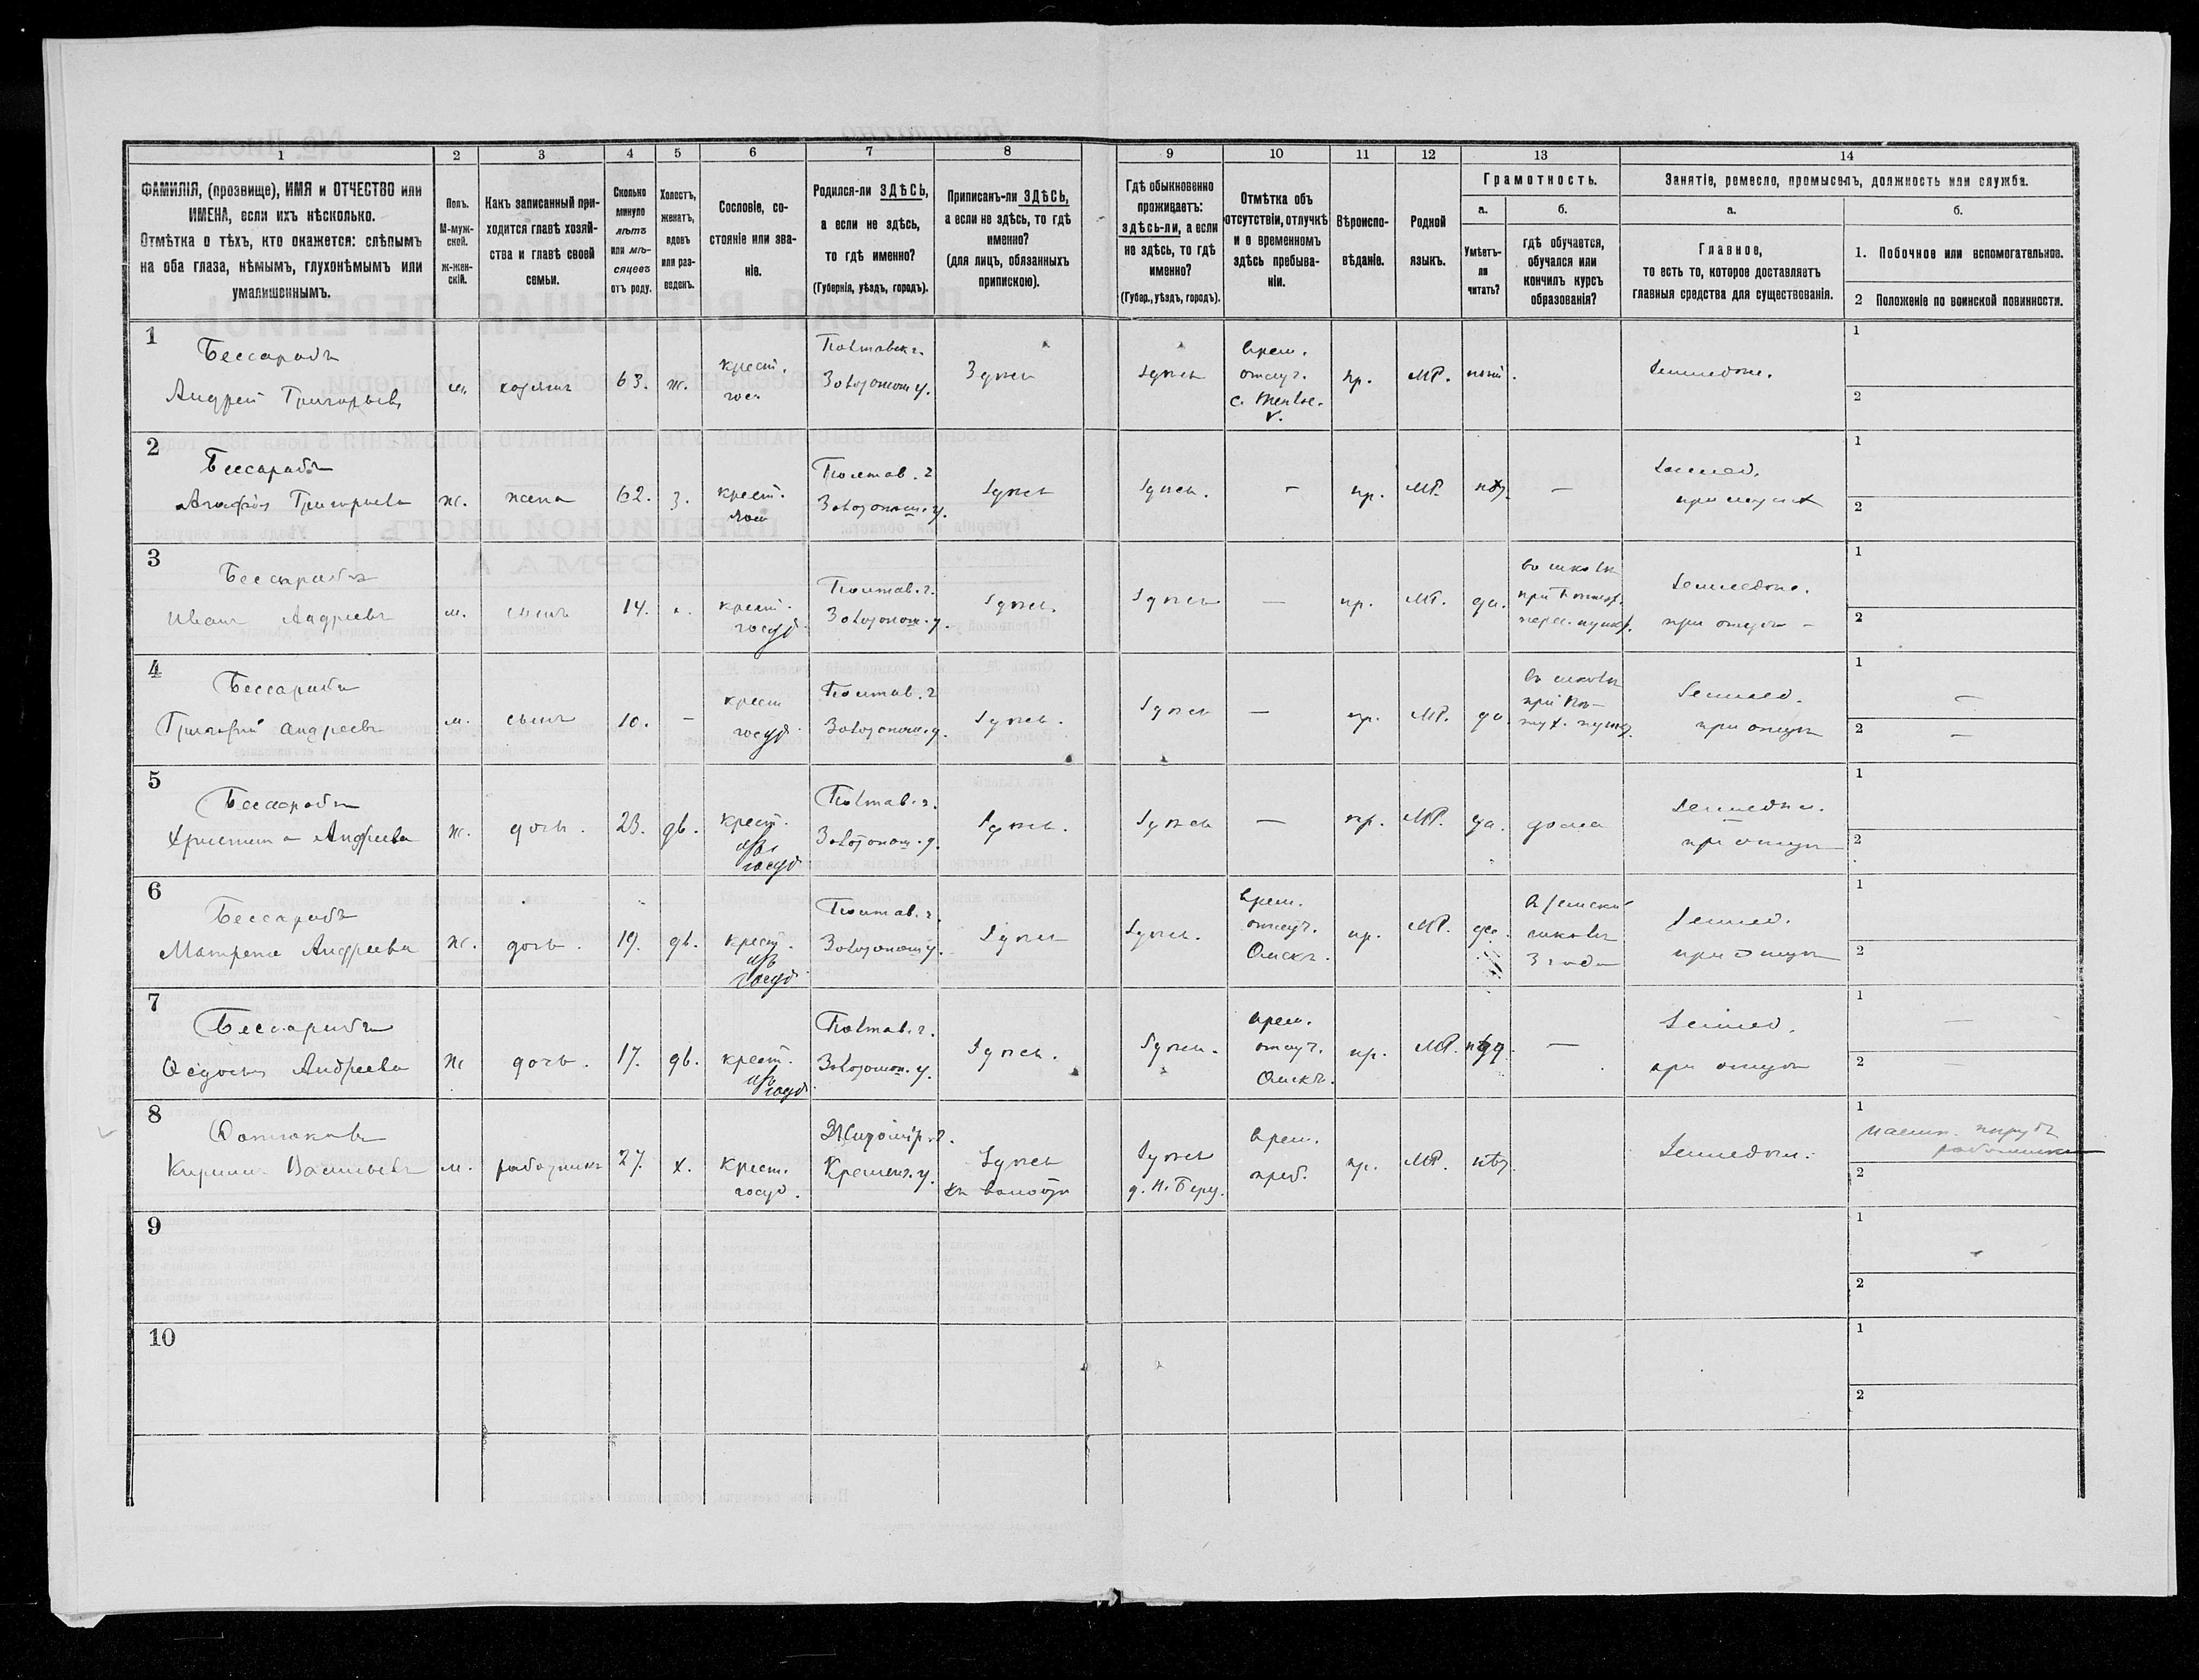 1
2
3
4
5
6
7
8
9
10
11
12
13
14
ФАМИЛІЯ, (прозвище), ИМЯ и ОТЧЕСТВО или
ИМЕНА, если ихъ нѣсколько.
Отмѣтка о тѣхъ, кто окажется: слѣпымъ
на оба глаза, нѣмымъ, глухонѣмымъ или
умалишеннымъ.
Полъ.
М-муж-
ской.
ж-жен-
скій.
Какъ записанный при-
ходится главѣ хозяй-
ства и главѣ своей
семьи.
Сколько
минуло
лѣтъ
или мѣ-
сяцевъ
отъ роду.
Холостъ,
женатъ,
вдовъ
или раз-
веденъ.
Сословіе, со-
стояніе или зва-
ніе.
Родился-ли ЗДѢСЬ,
а если не здѣсь,
то гдѣ именно?
(Губернія, уѣздъ, городъ).
Приписанъ-ли ЗДѢСЬ,
а если не здѣсь, то гдѣ
именно?
(для лицъ, обязанныхъ
припискою).
Гдѣ обыкновенно
проживаетъ:
здѣсь-ли, а если
не здѣсь, то гдѣ
именно?
(Губер., уѣздъ, городъ).
Отмѣтка объ
отсутствіи, отлучкѣ
и о временномъ
здѣсь пребыва-
ніи.
Вѣроиспо-
вѣданіе.
Родной
языкъ.
Грамотность.
а.
б.
Умѣетъ-
ли
читать?
гдѣ обучается,
обучался или
кончилъ курсъ
образованія?
Занятіе, ремесло, промыселъ, должность или служба.
а.
б.
Главное,
то есть то, которое доставляетъ
главныя средства для существованія.
1. Побочное или вспомогательное.
2 Положеніе по воинской повинности.
1
Бессарабъ
Андрей Григорьевъ
м.
хозяинъ
63.
ж.
крест.
гос.
Полтавск. г.
Золотонош. у.
Здесь
Здесь
врем.
отсут.
пр.
МР.
Землед.
1
2
2
Бессарабъ
Агафія Григорьева
ж.
жена
62.
з.
крест.
Полтав. г.
Золотонош. у.
Здесь
Здесь.
-
пр.
МР.
нѣт
—
Землед.
при мужѣ
1
2
3
Бессарабъ
Иванъ Андреевъ
м.
сынъ
14.
крест.
госуд.
Полтав. г.
Золотонош. у.
Здесь
Здесь
—
пр.
МР.
да.
во школѣ
Землед.
при отцѣ -
1
2
4
Бессарабъ
Григорій Андреевъ
м.
сынъ
10.
-
крест
госуд.
Полтав. г
Золотонош. у.
Здесь.
Здесь
—
пр.
МР.
да
въ школѣ
Землед.
при отцѣ
1
2
5
Бессарабъ
Христина Андреева
ж.
дочь.
23.
дѣ.
крест.
изъ
госуд.
Полтав. г.
Золотонош. у.
Здесь.
Здесь
—
пр.
МР.
да.
дома
Землед.
при отцѣ
1
2
6
Бессарабъ
Матрена Андреева
ж.
дочь.
19.
дѣ.
крест.
изъ
госуд.
Полтав. г.
Золотонош. у.
Здесь
Здесь.
врем.
отсут.
Омскъ.
пр.
МР.
да.
в земской
школѣ
3 года
Землед.
при отцѣ
1
2
7
Бессарабъ
Ѳедосья Андреева
ж
дочь.
17.
дѣ.
крест.
изъ
госуд.
Полтав. г.
Золотонош. у.
Здесь.
Здесь.
врем.
отсут.
Омскъ.
пр.
МР.
—
Землед.
при отцѣ
1
2
8
Васильевъ
м.
работникъ
27.
х.
крест.
госуд.
Житомір. г.
Кременч. у.
Здесь
Здесь
врем.
преб.
пр.
МР.
нѣт
Землед.
1
2
9
1
2
10
1
2